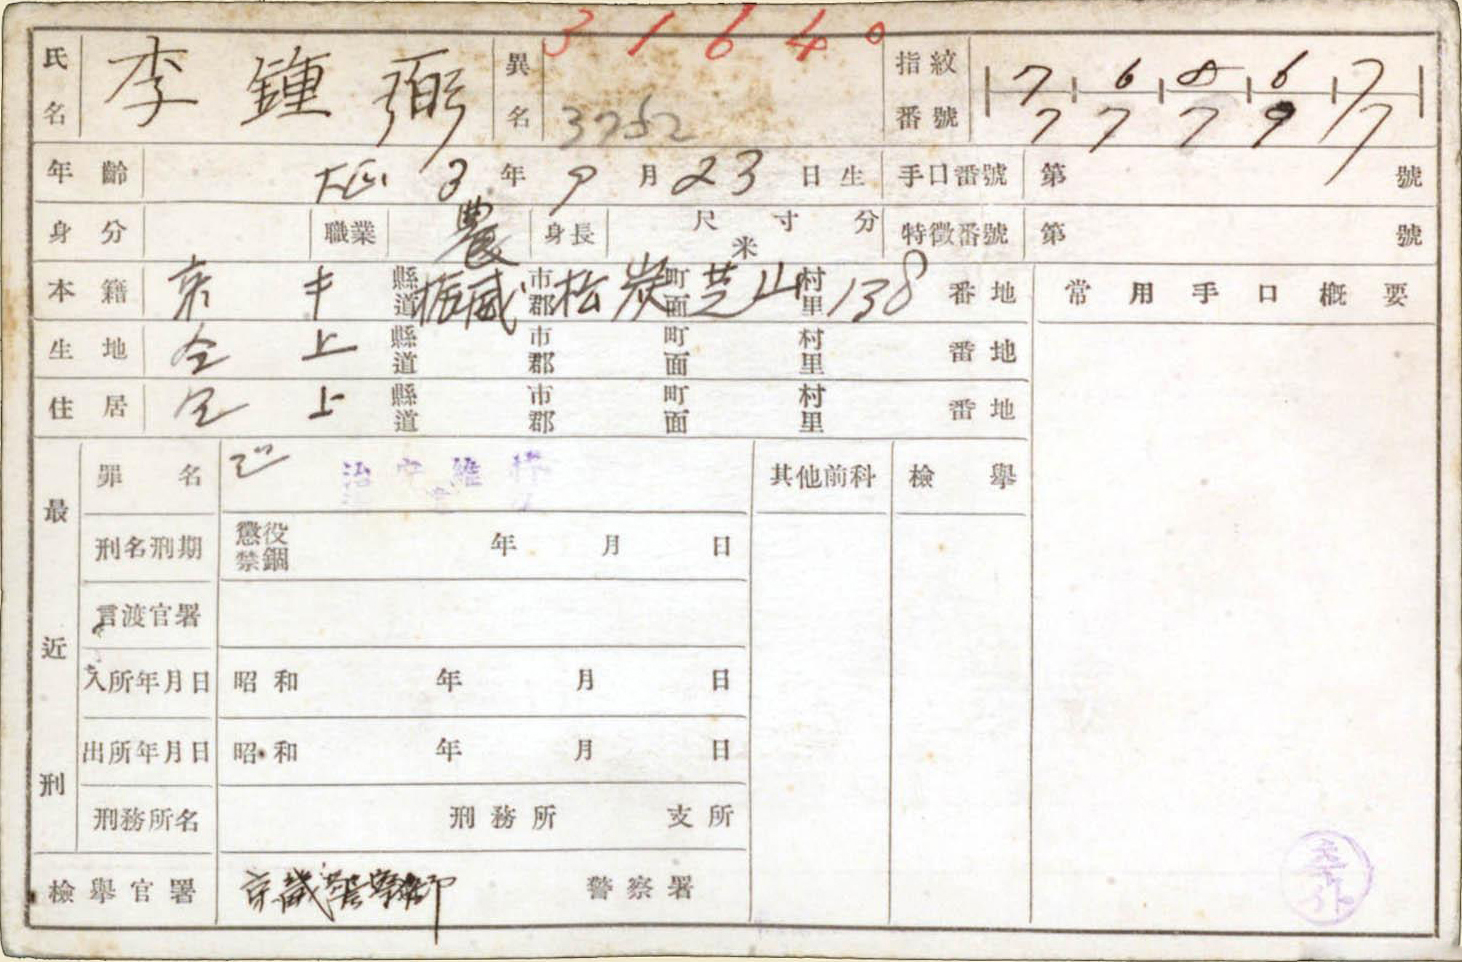 31640
氏名 李鍾弼 異名 3752 指紋番號 7 6 8 6 7 / 7 7 7 9 7
年齡 大正 3年9月23日生 手口番號 第 號
身分 職業 農 身長 尺寸分 米 特徵番號 第 號
本籍 京 縣道 振威 市郡 松炭 町面 芝山 村里 138 番地 常用手口概要
生地 仝上 縣道 市郡 町面 村里 番地
住居 仝上 縣道 市郡 町面 村里 番地
最近刑
罪名 治安維持 其他前科 檢擧
刑名刑期 懲役 禁錮 年月日
言渡官署
入所年月日 昭和 年月日
出所年月日 昭和 年月日
刑務所名 刑務所 支所
檢擧官署 警察署